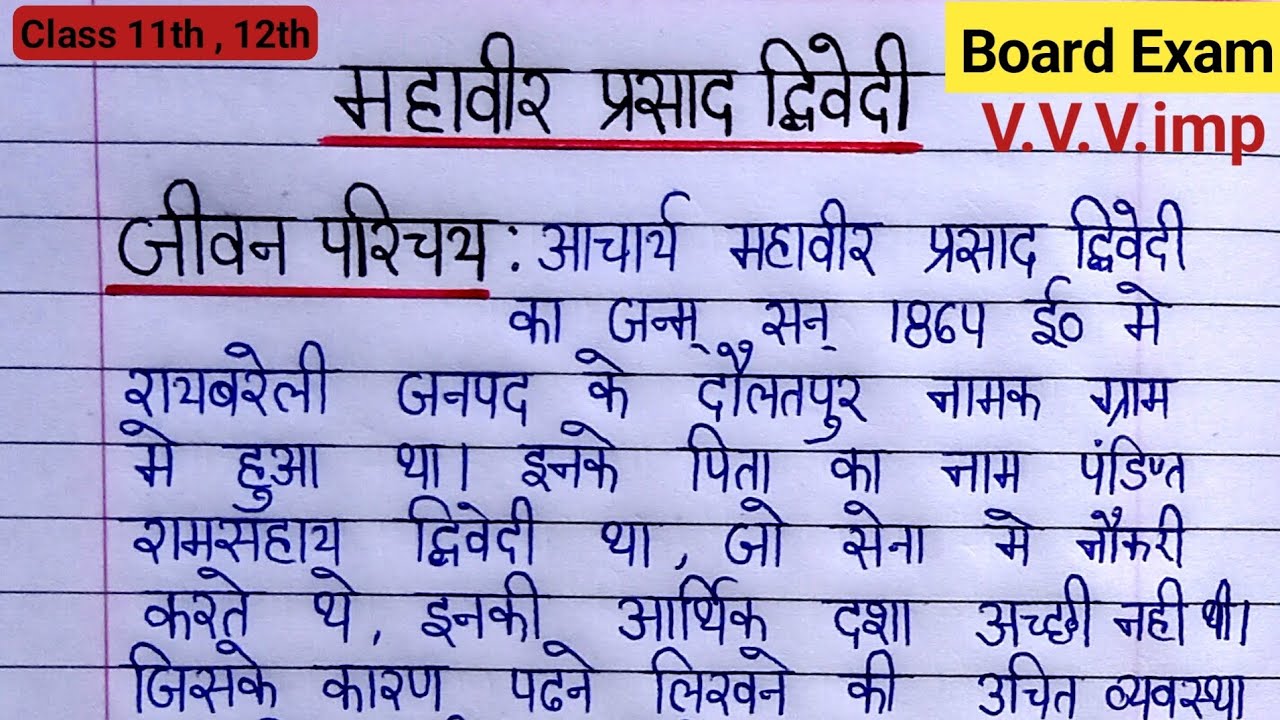 Class 11th , 12th
Board Exam
V.V.V.imp
महावीर प्रसाद द्विवेदी
जीवन परिचय : आचार्य महावीर प्रसाद द्विवेदी
का जन्म् सन् 1864 ई० मे
रायबरेली जनपद के दौलतपुर नामक ग्राम
मे हुआ था। इनके पिता का नाम पंडित
रामसहाय द्विवेदी था, जो सेना मे नौकरी
करते थे, इनकी आर्थिक दशा अच्छी नही थी।
जिसके कारण पढने लिखने की उचित व्यवस्था